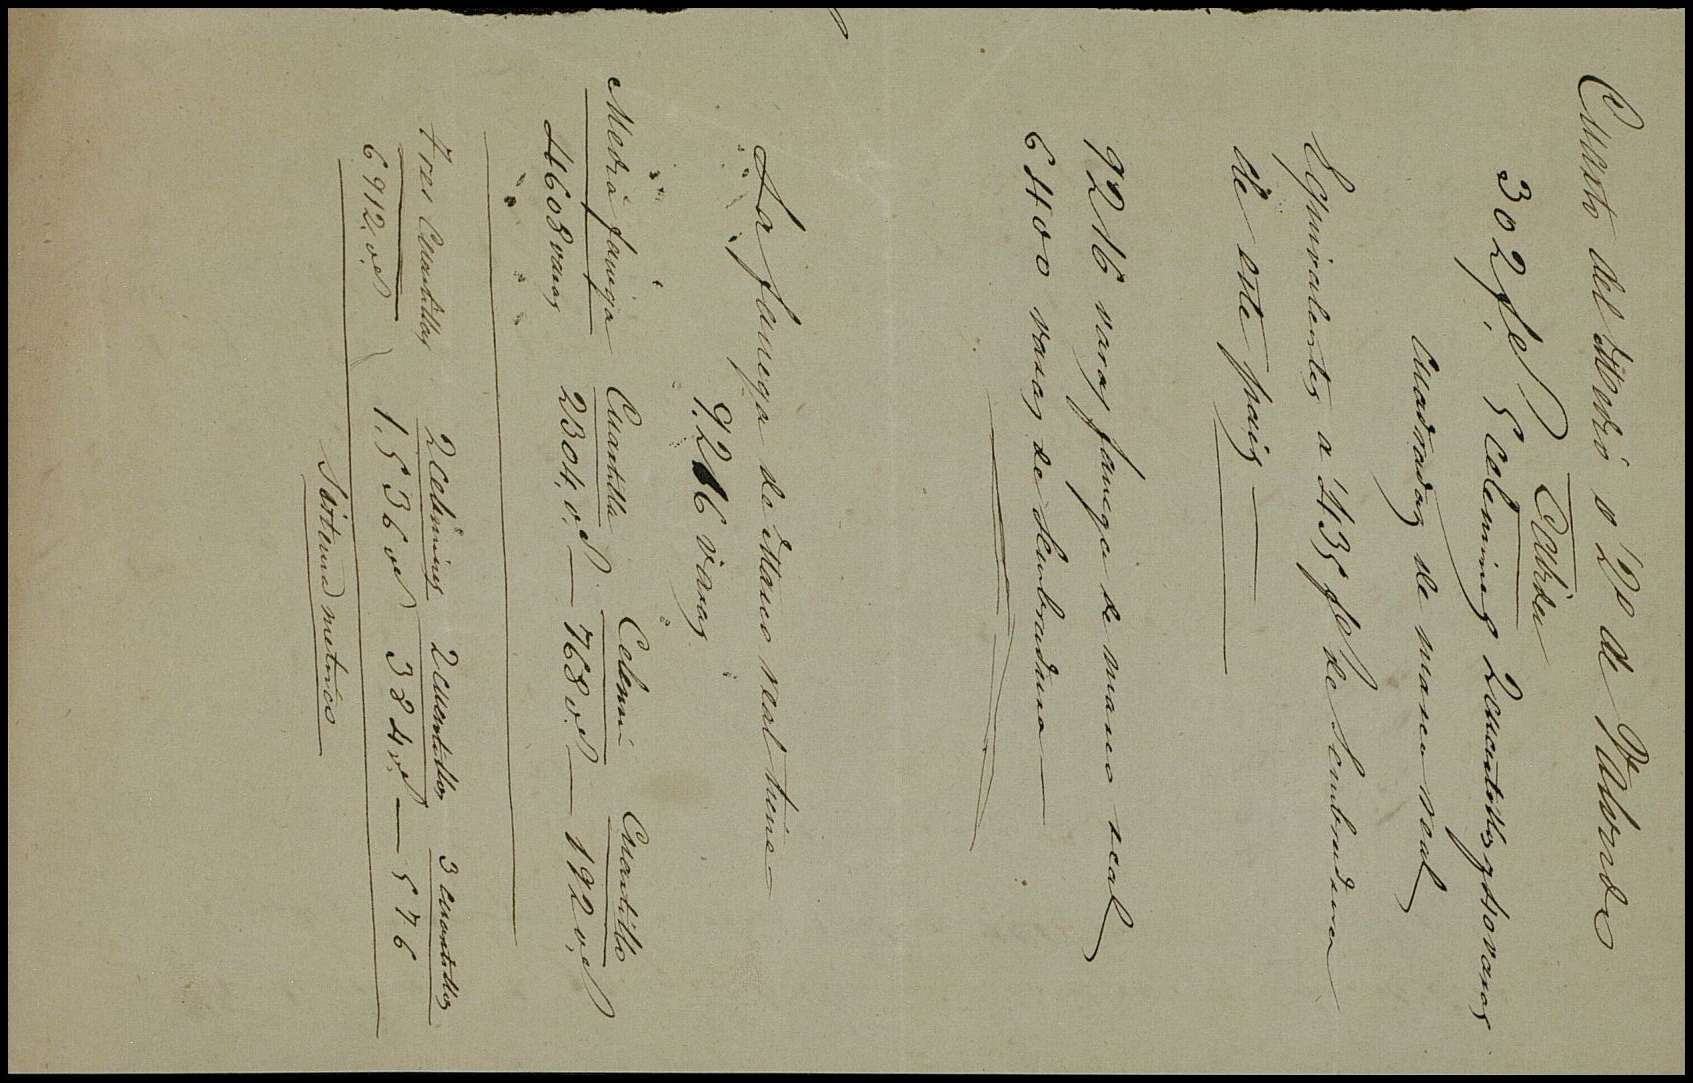 Cuarto del Medio o 2º de Valverde
Cabida
302 fs 5 celemines 2 cuartillos y 40 varas
cuadradas de marco real
Equivalentes a 435 fs de Sembradura
de este pais
9216 varas fanega de marco real
6400 varas de Sembradura
La fanega de Marco real tiene
9.216 varas
Media fanega Cuartilla Celemin Cuartillo
4608 varas 2304, vs — 768 vs — 192 vs
Tres Cuartillas 2 celemines 2 cuartillos 3 cuartillos
6912 vs 1.536 vs 384 vs — 576
Sistema metrico